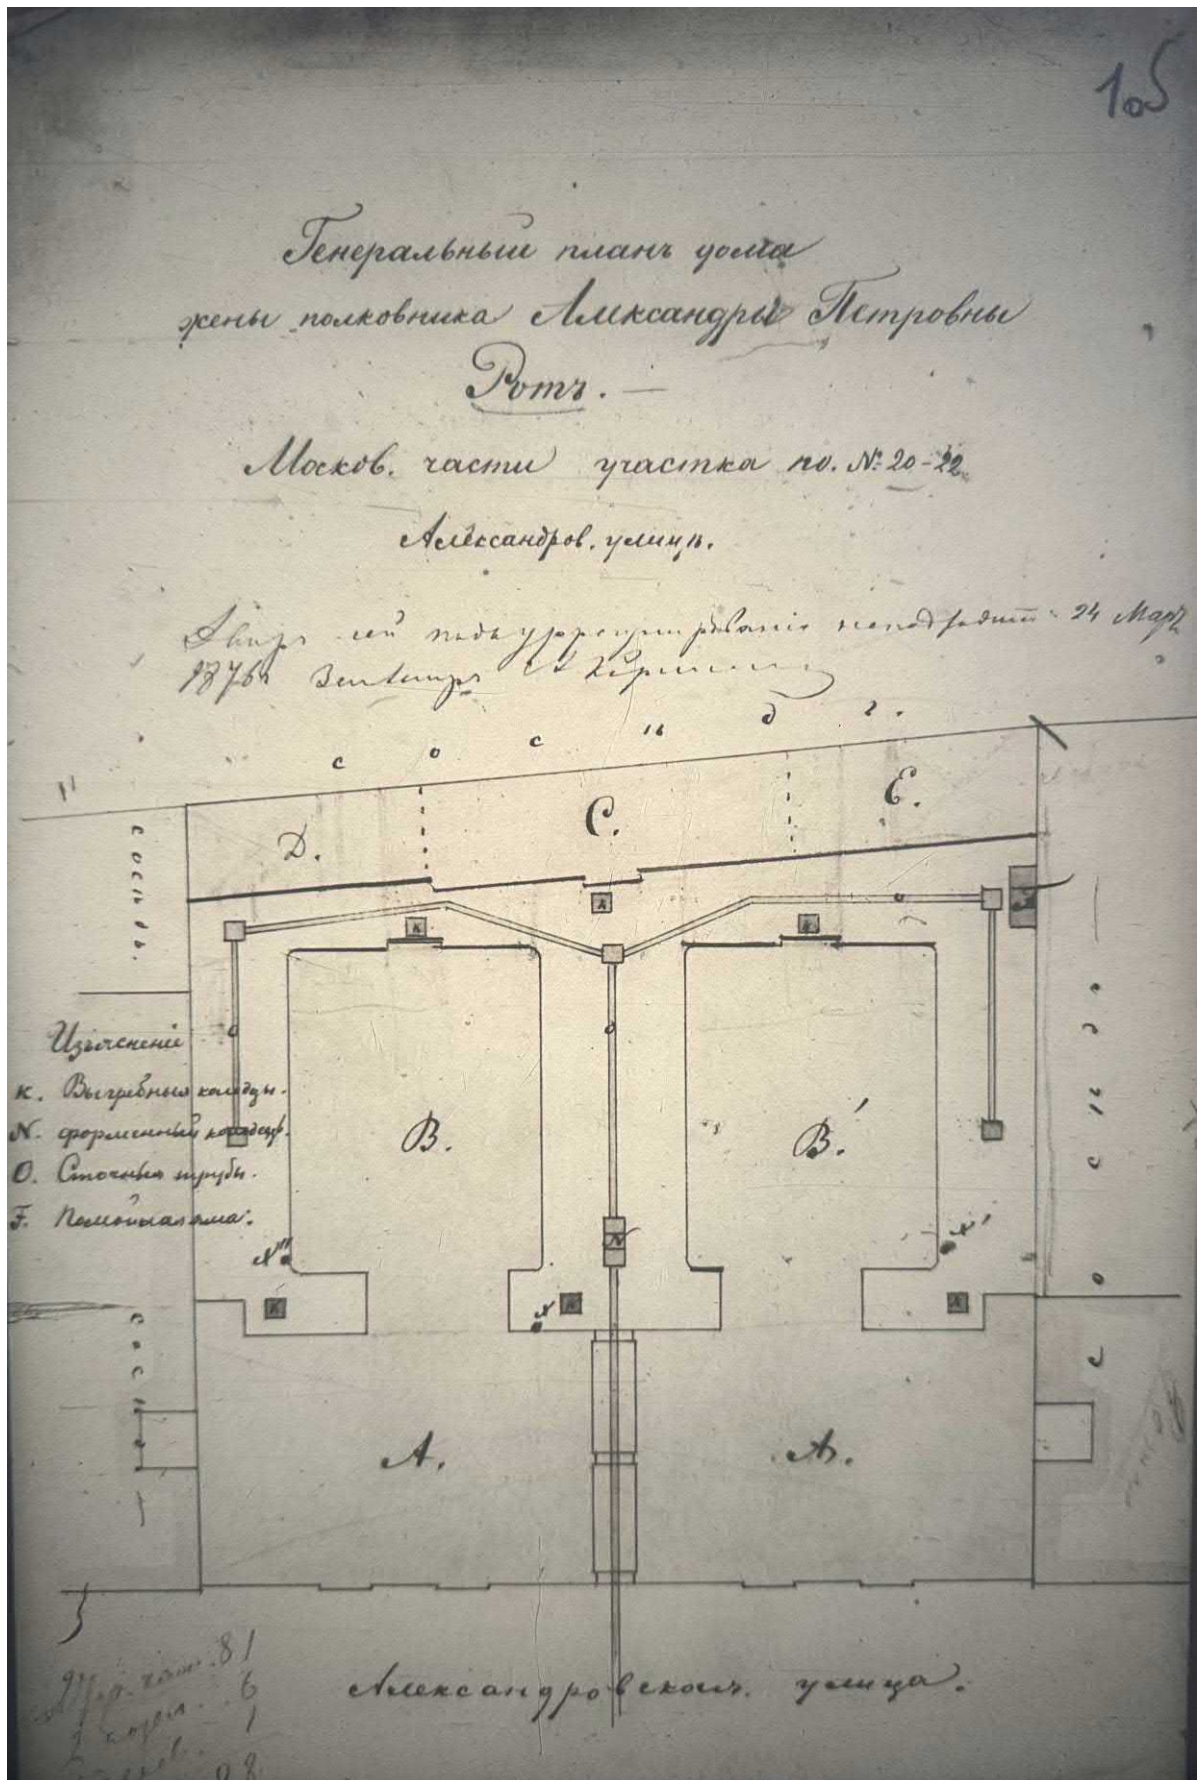 105
Генеральный планъ дома
жены полковника Александры Петровны
Ротъ.
Москов. части участка по. № 20-22
Александров. улицѣ.
24 Мар
1876
с о с ѣ д ъ.
D. C. E.
сосѣдъ.
K K K
B. B.
Изъясненіе
K. Выгребные колодцы.
N. форменный колодецъ.
O. Сточныя трубы.
F. Помойная яма.
N
K K K
A. A.
сосѣдъ
сосѣдъ
Александровская. улица.
81
6
1